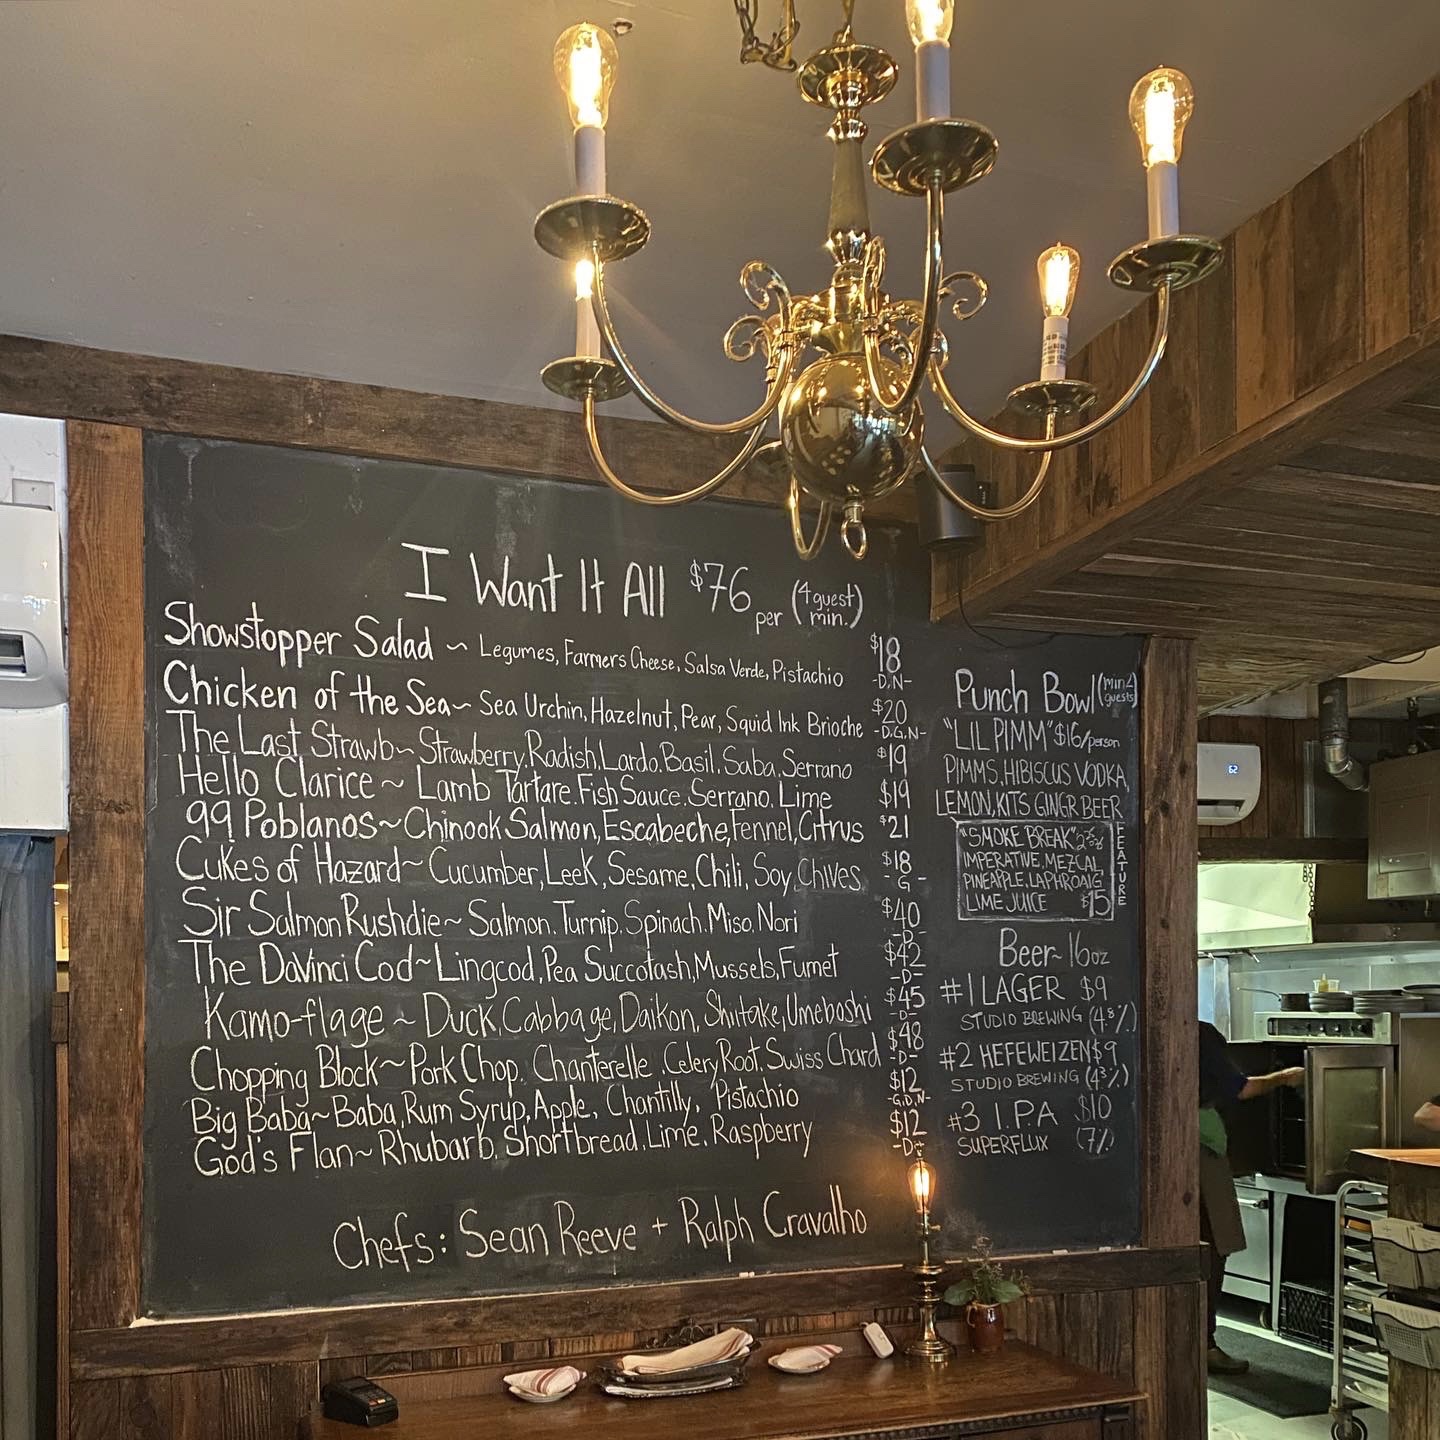 I Want It All $76 per (4 guest min.)
Showstopper Salad ~ Legumes, Farmers Cheese, Salsa Verde, Pistachio $18
-D,N-
Chicken of the Sea ~ Sea Urchin, Hazelnut, Pear, Squid Ink Brioche $20
-D,G,N-
The Last Strawb ~ Strawberry, Radish, Lardo, Basil, Saba, Serrano $19
Hello Clarice ~ Lamb Tartare, Fish Sauce, Serrano, Lime $19
99 Poblanos ~ Chinook Salmon, Escabeche, Fennel, Citrus $21
Cukes of Hazard ~ Cucumber, Leek, Sesame, Chili, Soy, Chives $18
- G -
Sir Salmon Rushdie ~ Salmon, Turnip, Spinach, Miso, Nori $40
-D-
The DaVinci Cod ~ Lingcod, Pea Succotash, Mussels, Fumet $42
-D-
Kamo-flage ~ Duck, Cabbage, Daikon, Shiitake, Umeboshi $45
-D-
Chopping Block ~ Pork Chop, Chanterelle, Celery Root, Swiss Chard $48
-D-
Big Baba ~ Baba, Rum Syrup, Apple, Chantilly, Pistachio $12
-G,D,N-
God's Flan ~ Rhubarb, Shortbread, Lime, Raspberry $12
-D-
Chefs: Sean Reeve + Ralph Cravalho
Punch Bowl (min 2 guests)
"LIL PIMM" $16/person
PIMMS, HIBISCUS VODKA,
LEMON, KITS GINGR BEER
"SMOKE BREAK"
IMPERATIVE, MEZCAL,
PINEAPPLE, LAPHROAIG
LIME JUICE $15
FEATURE
Beer ~ 16oz
#1 LAGER $9
STUDIO BREWING (4.8%)
#2 HEFEWEIZEN $9
STUDIO BREWING (4.3%)
#3 I.P.A $10
SUPERFLUX (7%)
62